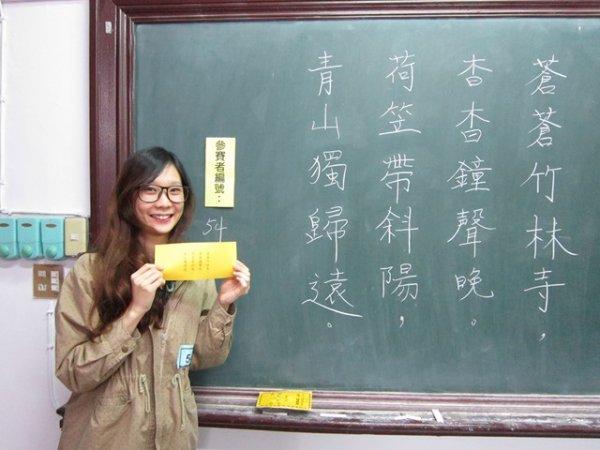 蒼蒼竹林寺，
杳杳鐘聲晚。
荷笠帶斜陽，
青山獨歸遠。
參賽者編號：
54